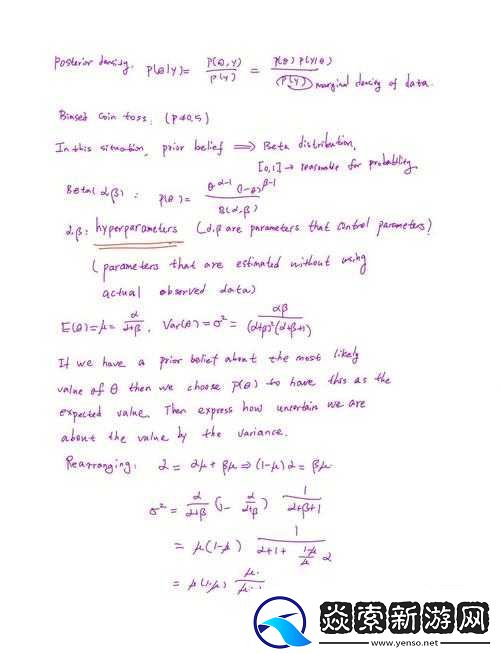 Posterior density. P(θ|y) = P(θ,y) / P(y) = P(θ) P(y|θ) / P(y) marginal density of data.
Biased coin toss. (P≠0.5)
In this situation, prior belief ⟹ Beta distribution,
[0,1] → reasonable for probability
Beta(α,β) : P(θ) = θ^(α-1) (1-θ)^(β-1) / B(α,β)
α,β: hyperparameters (α,β are parameters that control parameters)
(parameters that are estimated without using
actual observed data)
E(θ)=μ= α/(α+β), Var(θ)=σ²= αβ/((α+β)²(α+β+1))
If we have a prior belief about the most likely
value of θ then we choose P(θ) to have this as the
expected value. Then express how uncertain we are
about the value by the variance.
Rearranging: α = αμ + βμ ⇒ (1-μ)α = βμ
σ² = α/(α+β) (1- α/(α+β)) 1/(α+β+1)
= μ(1-μ) 1/(α+1+ (1-μ)/μ α)
= μ(1-μ)
焱索新游网
www.yenso.net